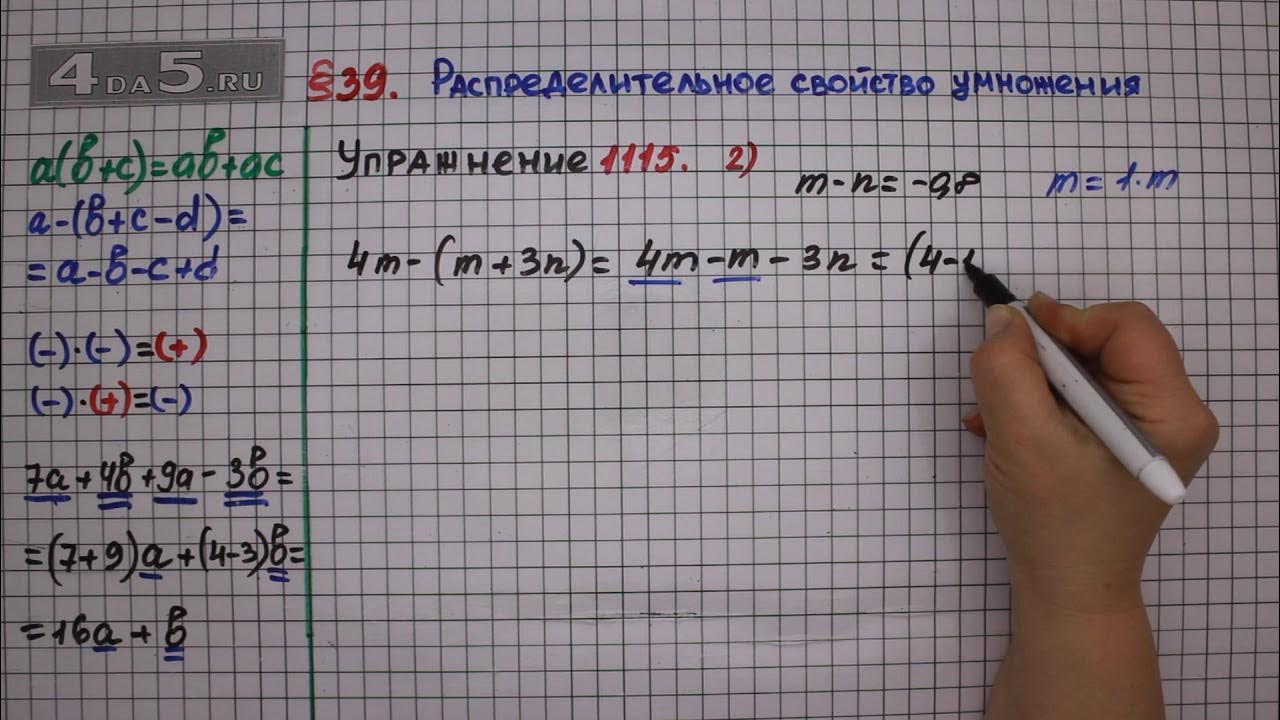 4DA5.RU
§39. Распределительное свойство умножения
a(b+c)=ab+ac
a-(b+c-d)=
=a-b-c+d
(-)·(-)=(+)
(-)·(+)=(-)
7a+4b+9a-3b=
=(7+9)a+(4-3)b=
=16a+b
Упражнение 1115. 2)
m-n=-0,8
m=1·m
4m-(m+3n)=4m-m-3n=(4-1